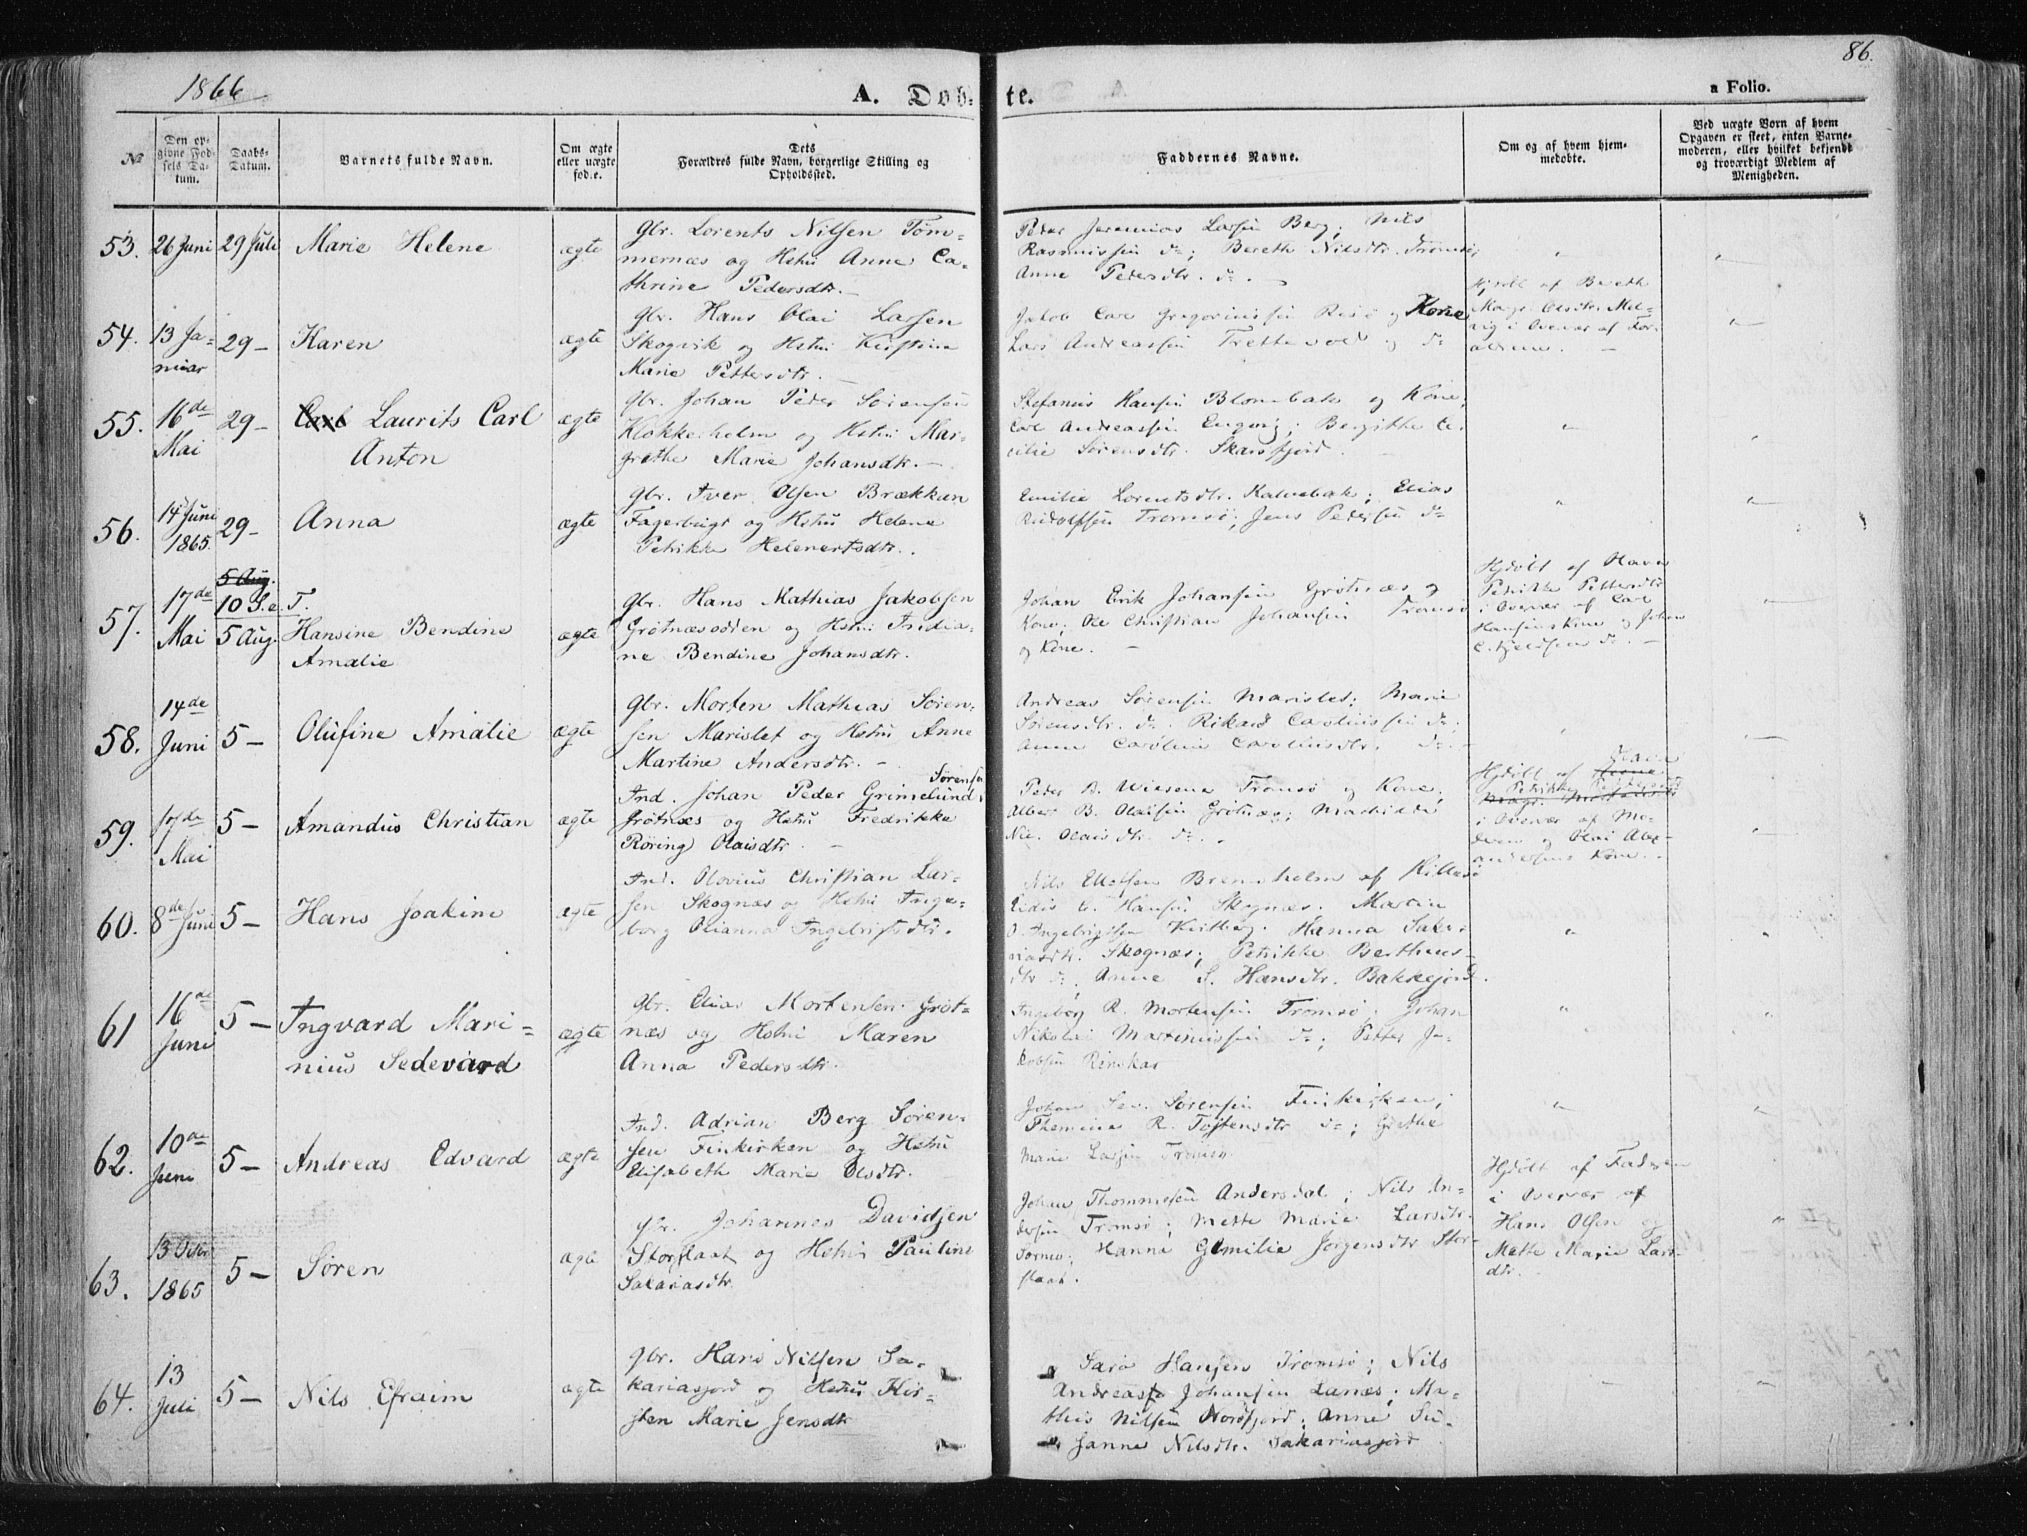 1866
A. Dob-te.
86.
a Folio.
No
Den op-
givne Fød-
sels Da-
tum.
Daabs-
Datum.
Barnets fulde Navn.
Om ægte
eller uægte
fød.e.
Dets
Forældres fulde Navn, borgerlige Stilling og
Opholdssted.
Faddernes Navne.
Om og af hvem hjem-
medøbte.
Ved uægte Born af hvem
Opgaven er skeet, enten Barne-
moderen, eller hvilket bekjendt
og troværdigt Medlem af
Menigheden.
53. 26 Juni 29 Juli Marie Helene ægte
Gbr. Lorents Nilsen Tøm-
mernæs og Hstru Anne Ca-
thrine Pedersdtr. -
Peder Jeremias Larsen Berg; Nils
Rasmussen do; Bereth Nilsdtr. Tromsø;
Anne Pedersdtr. do. -
54. 13 Ja-
nuar 29 - Karen ægte
Gbr. Hans Olai Larsen
Skogvik og Hstru Kirstine
Marie Pettersdtr. -
Jakob Carl Gregoriussen Risø og Kone
Lars Andreassen Trettevold og do
Hjdøbt af Bereth
Marg. Olsdtr. Mel-
vig i Overvær af For-
ældrene. -
55. 16de
Mai 29 - Carl Laurits Carl
Anton ægte
Gbr. Johan Peder Sørensen
Klokkerholm og Hstru Mar-
grethe Marie Johansdtr. -
Stefanus Hansen Blombak og Kone;
Carl Andreassen Engvig; Bergitthe Ce-
cilie Sørensdtr. Skarsfjord.
56. 14 Juni
1865. 29 - Anna ægte
Gbr. Iver Olsen Brækkan
Fagerbugt og Hstru Helene
Petrikke Helenertsdtr.
Emilie Lorentsdtr. Kalvebak; Elias
Rudolfsen Tromsø; Jens Pedersen do
57. 17de
Mai
5 Aug.
10 S.e. T.
5 Aug. Hansine Bendine
Amalie ægte
Gbr. Hans Mathias Jakobsen
Grøtnæsodden og Hstru Fridia-
ne Bendine Johansdtr.
Johan Erik Johansen Grøtnæs og
Kone; Ole Christian Johansen Tromsø
og Kone. -
Hjdøbt af Maren
Petrikke Pettersdtr
i Overvær af Carl
Hansens Kone og Johan
C. Kjeldsen do. -
58. 14de
Juni 5 - Olufine Amalie ægte
Gbr. Morten Mathias Søren-
sen Marislet og Hstru Anne
Martine Andersdtr. -
Andreas Sørensen Marislet; Marie
Sørensdtr. do. Rikard Caroliussen do.
Anne Caroline Caroliusdtr. do. -
59. 17de
Mai 5 - Amandus Christian ægte
Ind. Johan Peder Grimelund Sørensen
Grøtnæs og Hstru Fredrikke
Røring Olaisdtr. -
Peder A. Wiesener Tromsø og Kone;
Albert B. Olaisen Grøtnæs; Mathilde
Nic. Olaisdtr. do. -
Hjdøbt af Maren
Petrikke
i Overvær af Mo-
deren og Olai Alex-
andersens Kone. -
60. 8de Juni 5 - Hans Joakim ægte
Ind. Olovius Christian Lar-
sen Skognæs og Hstru Inge-
borg Olianna Ingebrigtsdtr.
Nils Ellefsen Bremsholm af Hillesø
Eidis C. Hansen Skognæs. Martin
O. Ingebrigtsen Hanna Saka-
riasdtr. Skognæs; Petrikke Bertheus-
dtr do; Anne S. Hansdtr. Bakkejord.
61 16de
Juni 5 - Ingvard Mari-
nius Sedevard ægte
Gbr. Elias Mortensen Grøt-
næs og Hstru Maren
Anna Pedersdtr.
Ingeborg R. Mortensen Tromsø; Johan
Nikolai Martinussen do; Petter Ja-
kobsen Rinskar
62. 10de
Juni 5 - Andreas Edvard ægte
Ind. Adrian Berg Søren-
sen Finkirken og Hstru
Elisabeth Marie Olsdtr.
Johan Sev. Sørensen Finkirken;
Themina R. Tostensdtr do; Grethe
Marie Larsen Tromsø.
63. 13 Octbr
1865 5 - Søren ægte
Gbr. Johannes Davidsen
Storslaat og Hstru Pauline
Sakariasdtr.
Johan Thommesen Andersdal; Nils An-
dersen Tromsø; Mette Marie Larsdtr.
Tormo; Hanne Gemilie Jørgensdtr Stor-
slaat.
Hjdøbt af Faderen
i Overvær af
Hans Olsen og
Mette Marie Lars-
dtr. -
64. 13
Juli 5 - Nils Efraim ægte
Gbr. Hans Nilsen Sa-
kariasjord og Hstru Kir-
sten Marie Jensdtr
Sara Hansen Tromsø; Nils
Andreas Johansen Lanes; Ma-
this Nilsen Nordfjord; Anne Su-
sanne Nilsdtr. Sakariasjord